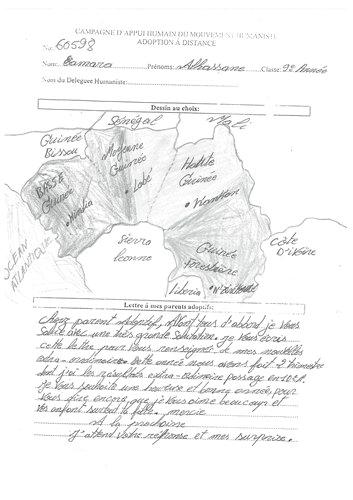 CAMPAGNE D'APPUI HUMAIN DU MOUVEMENT HUMANISTE
ADOPTION À DISTANCE
No: 60598
Nom: Camara Prénoms: Alhassane Classe: 9e Année
Nom du Déléguée Humaniste:
Dessin au choix:
Sénégal
Mali
Guinée
Bissau
Moyenne
Guinée
Labé
Haute
Guinée
Kankan
BASSE
Guinée
Kindia
OCEAN
ATLANTIQUE
Sierra
leonne
Guinée
Forestière
Côte
D'ivoire
Liberia
N'Zérékoré
Lettre à mes parents adoptifs:
parent adoptif, tout d'abord je vous
salue avec une très grande salutation. je vous écris
cette lettre pour vous renseigner de mes nouvelles
extra-ordinaire cette année nous avons fait trimestre
dont j'ai les résultats extra-ordinaire passage en 10eA.
je vous souhaite une heureuse et bonne année pour
vous dire encore que je vous aime beaucoup et
vos enfant surtout la fille. mercie
a la prochaine
J'attend votre réponse et mes surprise.